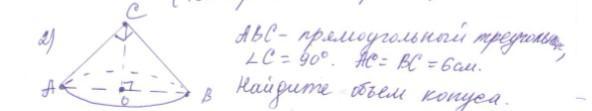 C
2)
ABC - прямоугольный треугольн,
∠C = 90°. AC = BC = 6см.
A
O
B
Найдите объем конуса.